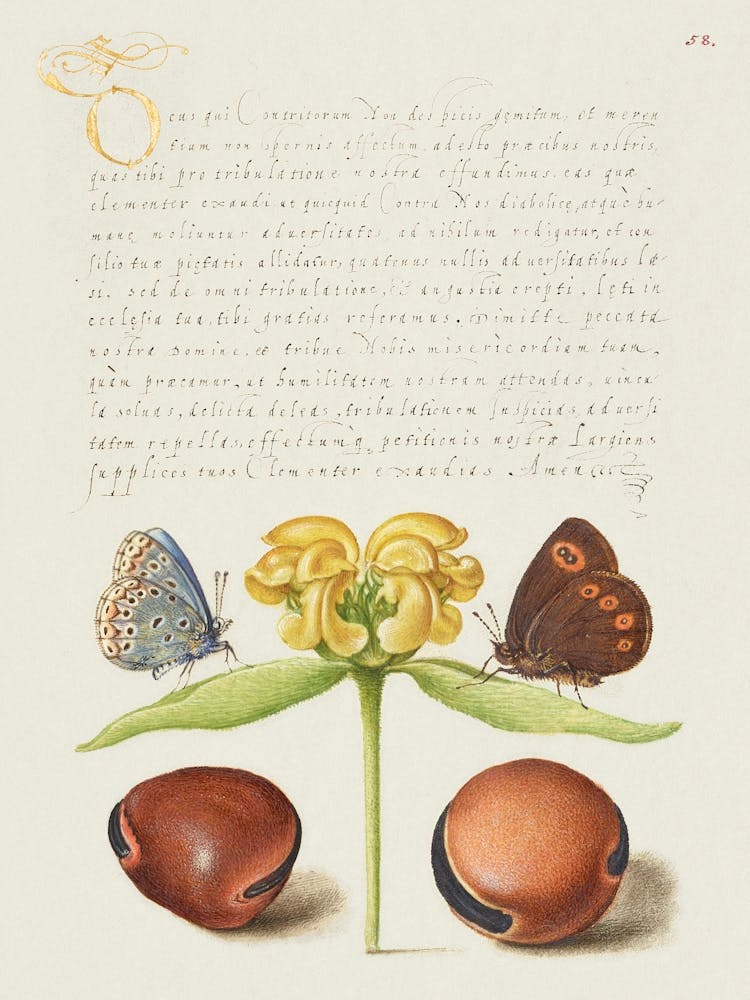 58.
Deus qui Contritorum Non despicis gemitum, et meren
tium non spernis affectum, adesto præcibus nostris,
quas tibi pro tribulatione nostra effundimus. eas quæ
clementer exaudi ut quicquid Contra Nos diabolicę, atquè hu-
manę moliuntur aduersitates, ad nihilum redigatur, et con
silio tuæ pietatis allidatur, quatenus nullis aduersitatibus læ-
si. sed de omni tribulatione, et angustia erepti, lęti in
ecclesia tua, tibi gratias referamus. Dimitte peccata
nostra Domine, et tribue Nobis misericordiam tuam,
quàm præcamur, ut humilitatem nostram attendas, uincu
la soluas, delicta deleas, tribulationem Inspicias, aduersi
tatem repellas, effectumq. petitionis nostræ largiens
supplices tuos Clementer exaudias Amen